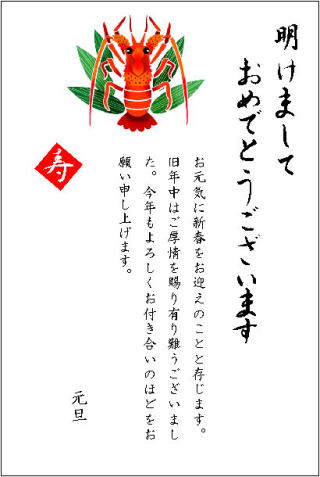 明けまして
おめでとうございます
お元気に新春をお迎えのことと存じます。
旧年中はご厚情を賜り有り難うございまし
た。今年もよろしくお付き合いのほどをお
願い申し上げます。
元旦
寿